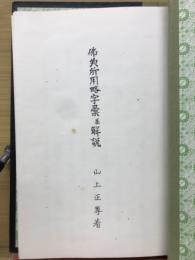 佛典所用略字彙並解説
山上正尊著